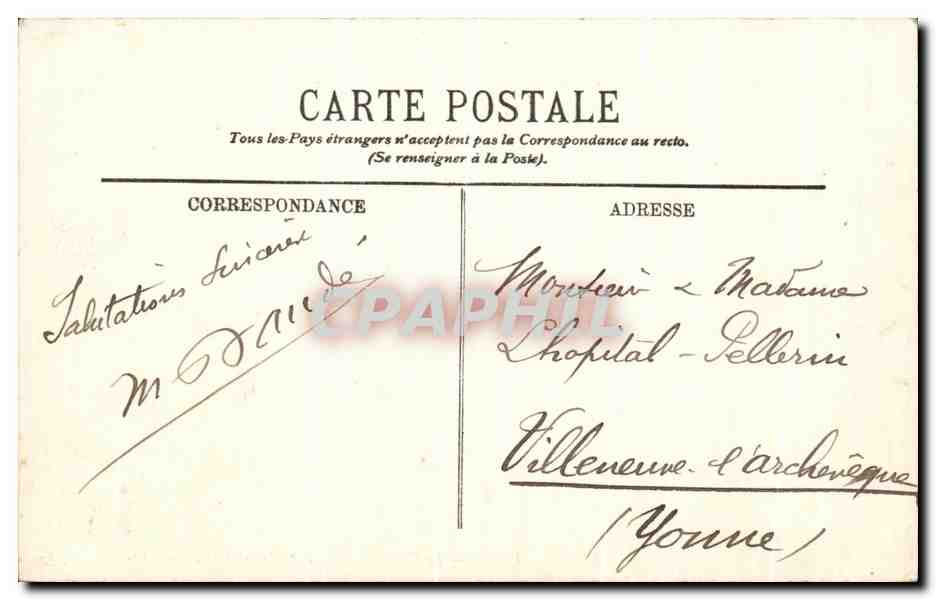 CARTE POSTALE
Tous les Pays étrangers n'acceptent pas la Correspondance au recto.
(Se renseigner à la Poste).
CORRESPONDANCE
ADRESSE
Salutations Sincères
M
CPAPHIL
Monsieur & Madame
Lhopital - Pellerin
Villeneuve-l'archevêque
(Yonne)